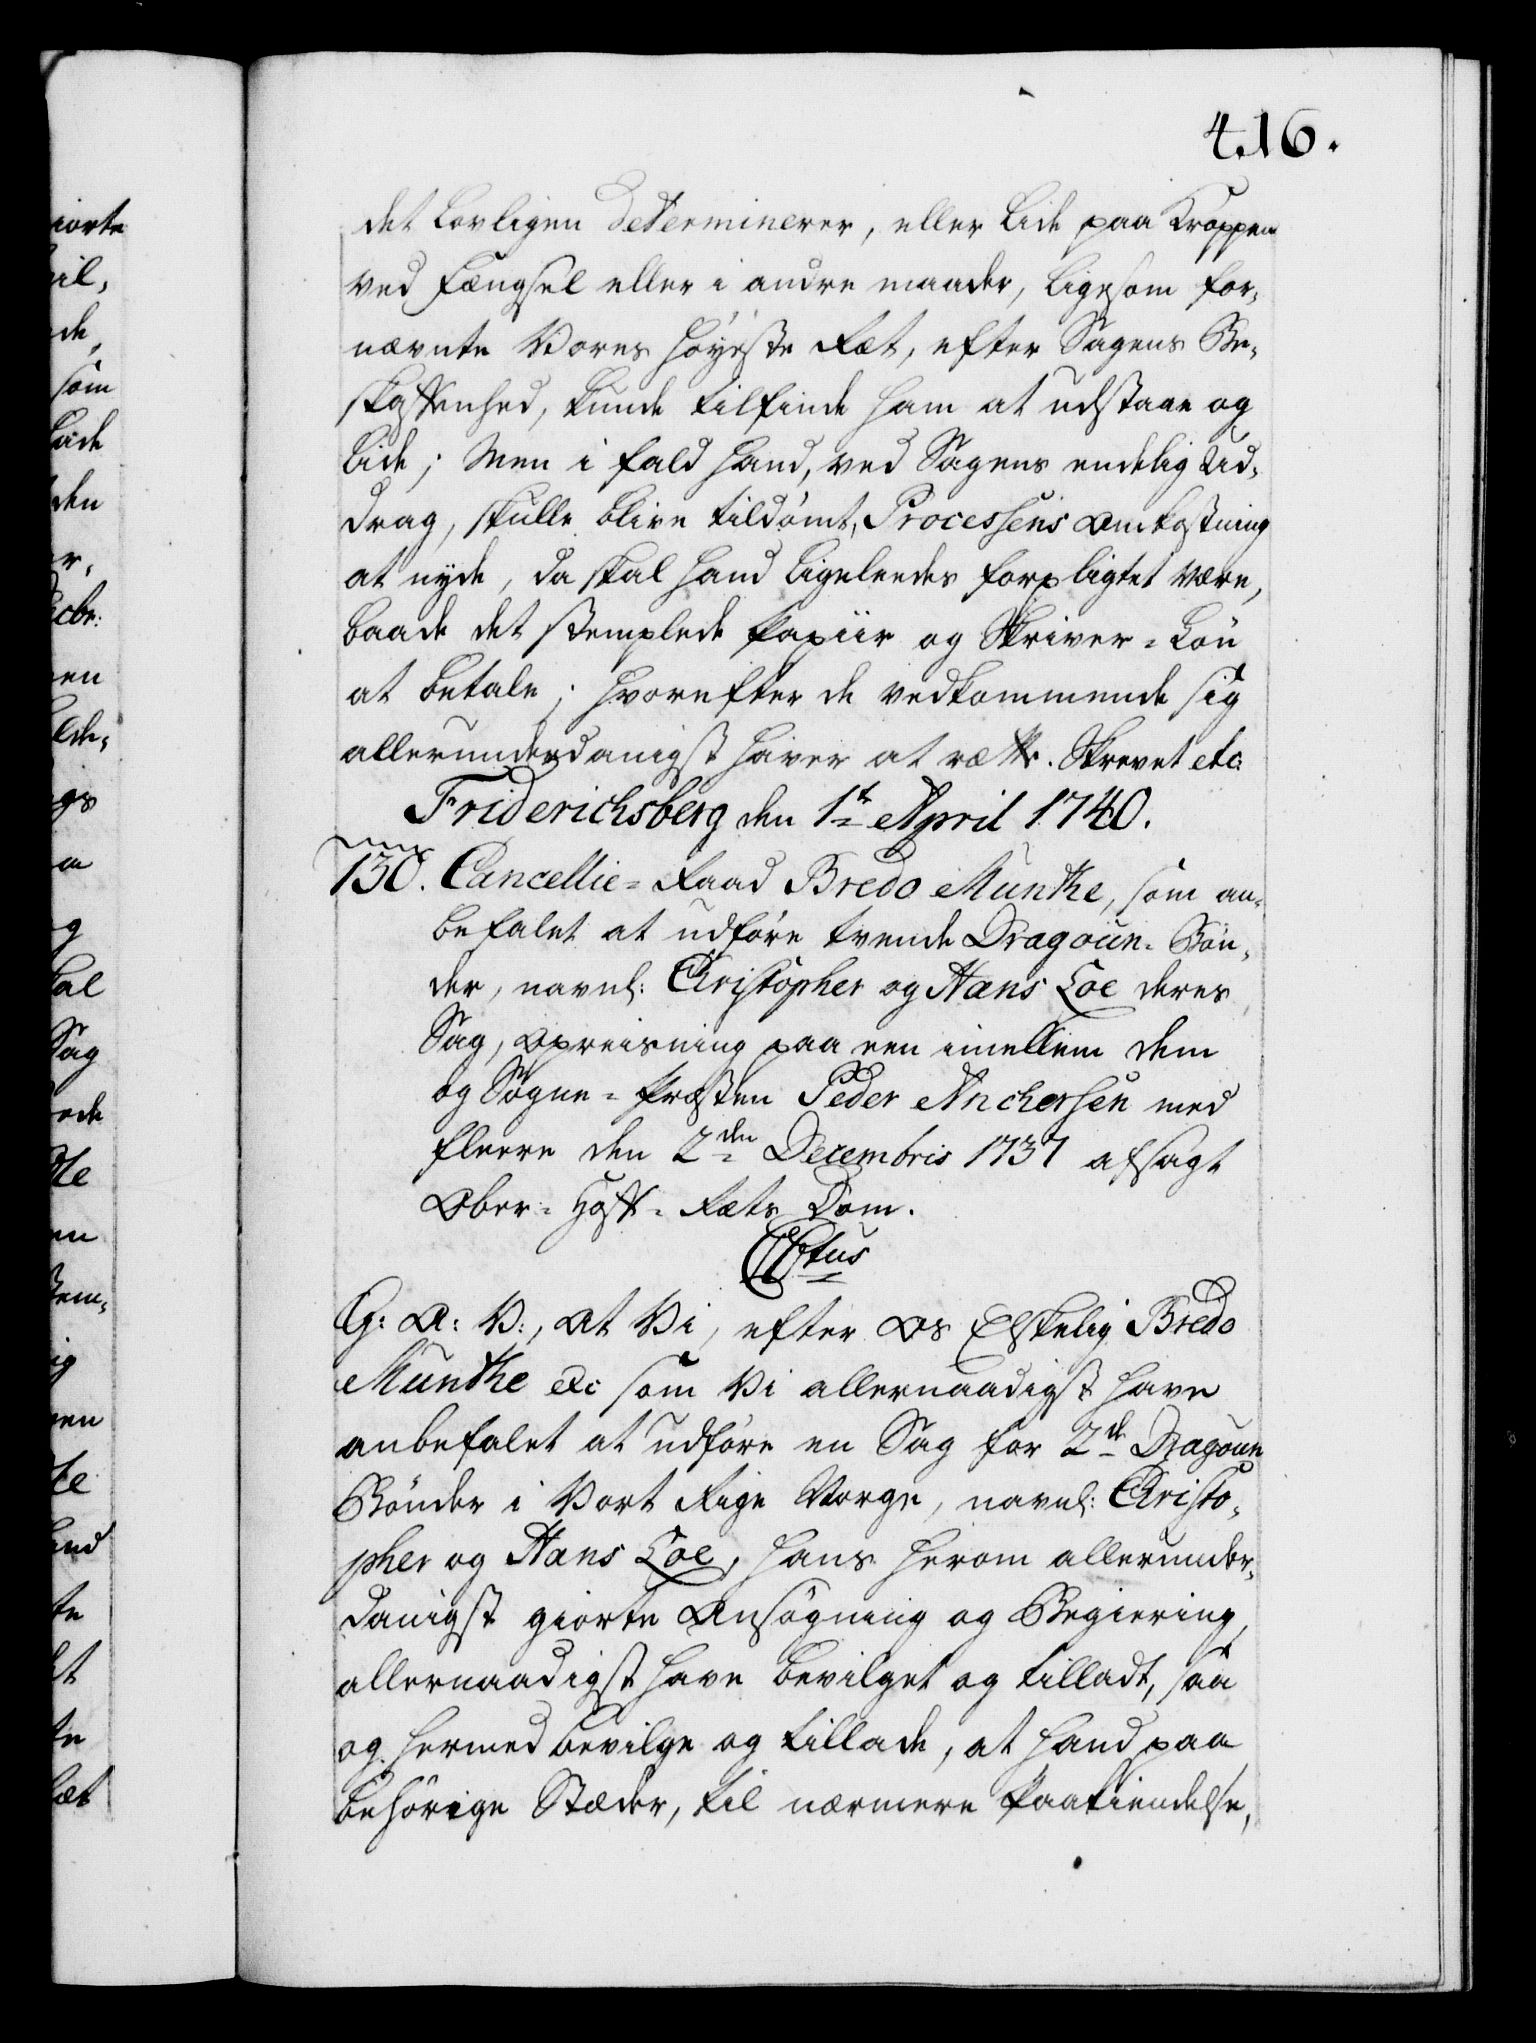 416.
det lovligen determinerer, eller lide paa Kroppen
ved Fængsel eller i andre maader, ligesom for¬
nævnte Vores Høyeste Ret, efter Sagens Be¬
skaffenhed, kunde tilfinde ham at udstaae og
lide; Men i fald hand, ved Sagens endelig Ud¬
drag, skulle blive tildømt, Processens Omkostning
at nyde, da skal hand ligeleedes forpligtet være,
baade det stemplede Papiir og Skriver-Løn
at betale; hvorefter de vedkommende sig
allerunderdanigst haver at rætte. Skrevet etc.
Friderichsberg den 1te April 1740.
130. Cancellie-Raad Bredo Munthe, som an¬
befalet at udføre tvende Dragoun-Bøn¬
der, navnl: Christopher og Hans Loe deres
Sag, Opreisning paa een imellem dem
og Sogne-Præsten Peder Anchersen med
fleere den 2den Decembris 1737 afsagt
Ober-Hoff-Rets Dom.
C6tus
G: A: V:, At Vi, efter Os Elskelig Bredo
Munthe etc som Vi allernaadigst have
anbefalet at udføre en Sag for 2de Dragoun
Bønder i Vort Rige Norge, navnl: Christo¬
pher og Hans Loe, hans herom allerunder¬
danigst giorte Ansøgning og Begiering,
allernaadigst have bevilget og tilladt, saa
og hermed bevilge og tillade, at hand paa
behørige Stæder, til nærmere Paakiendelse,